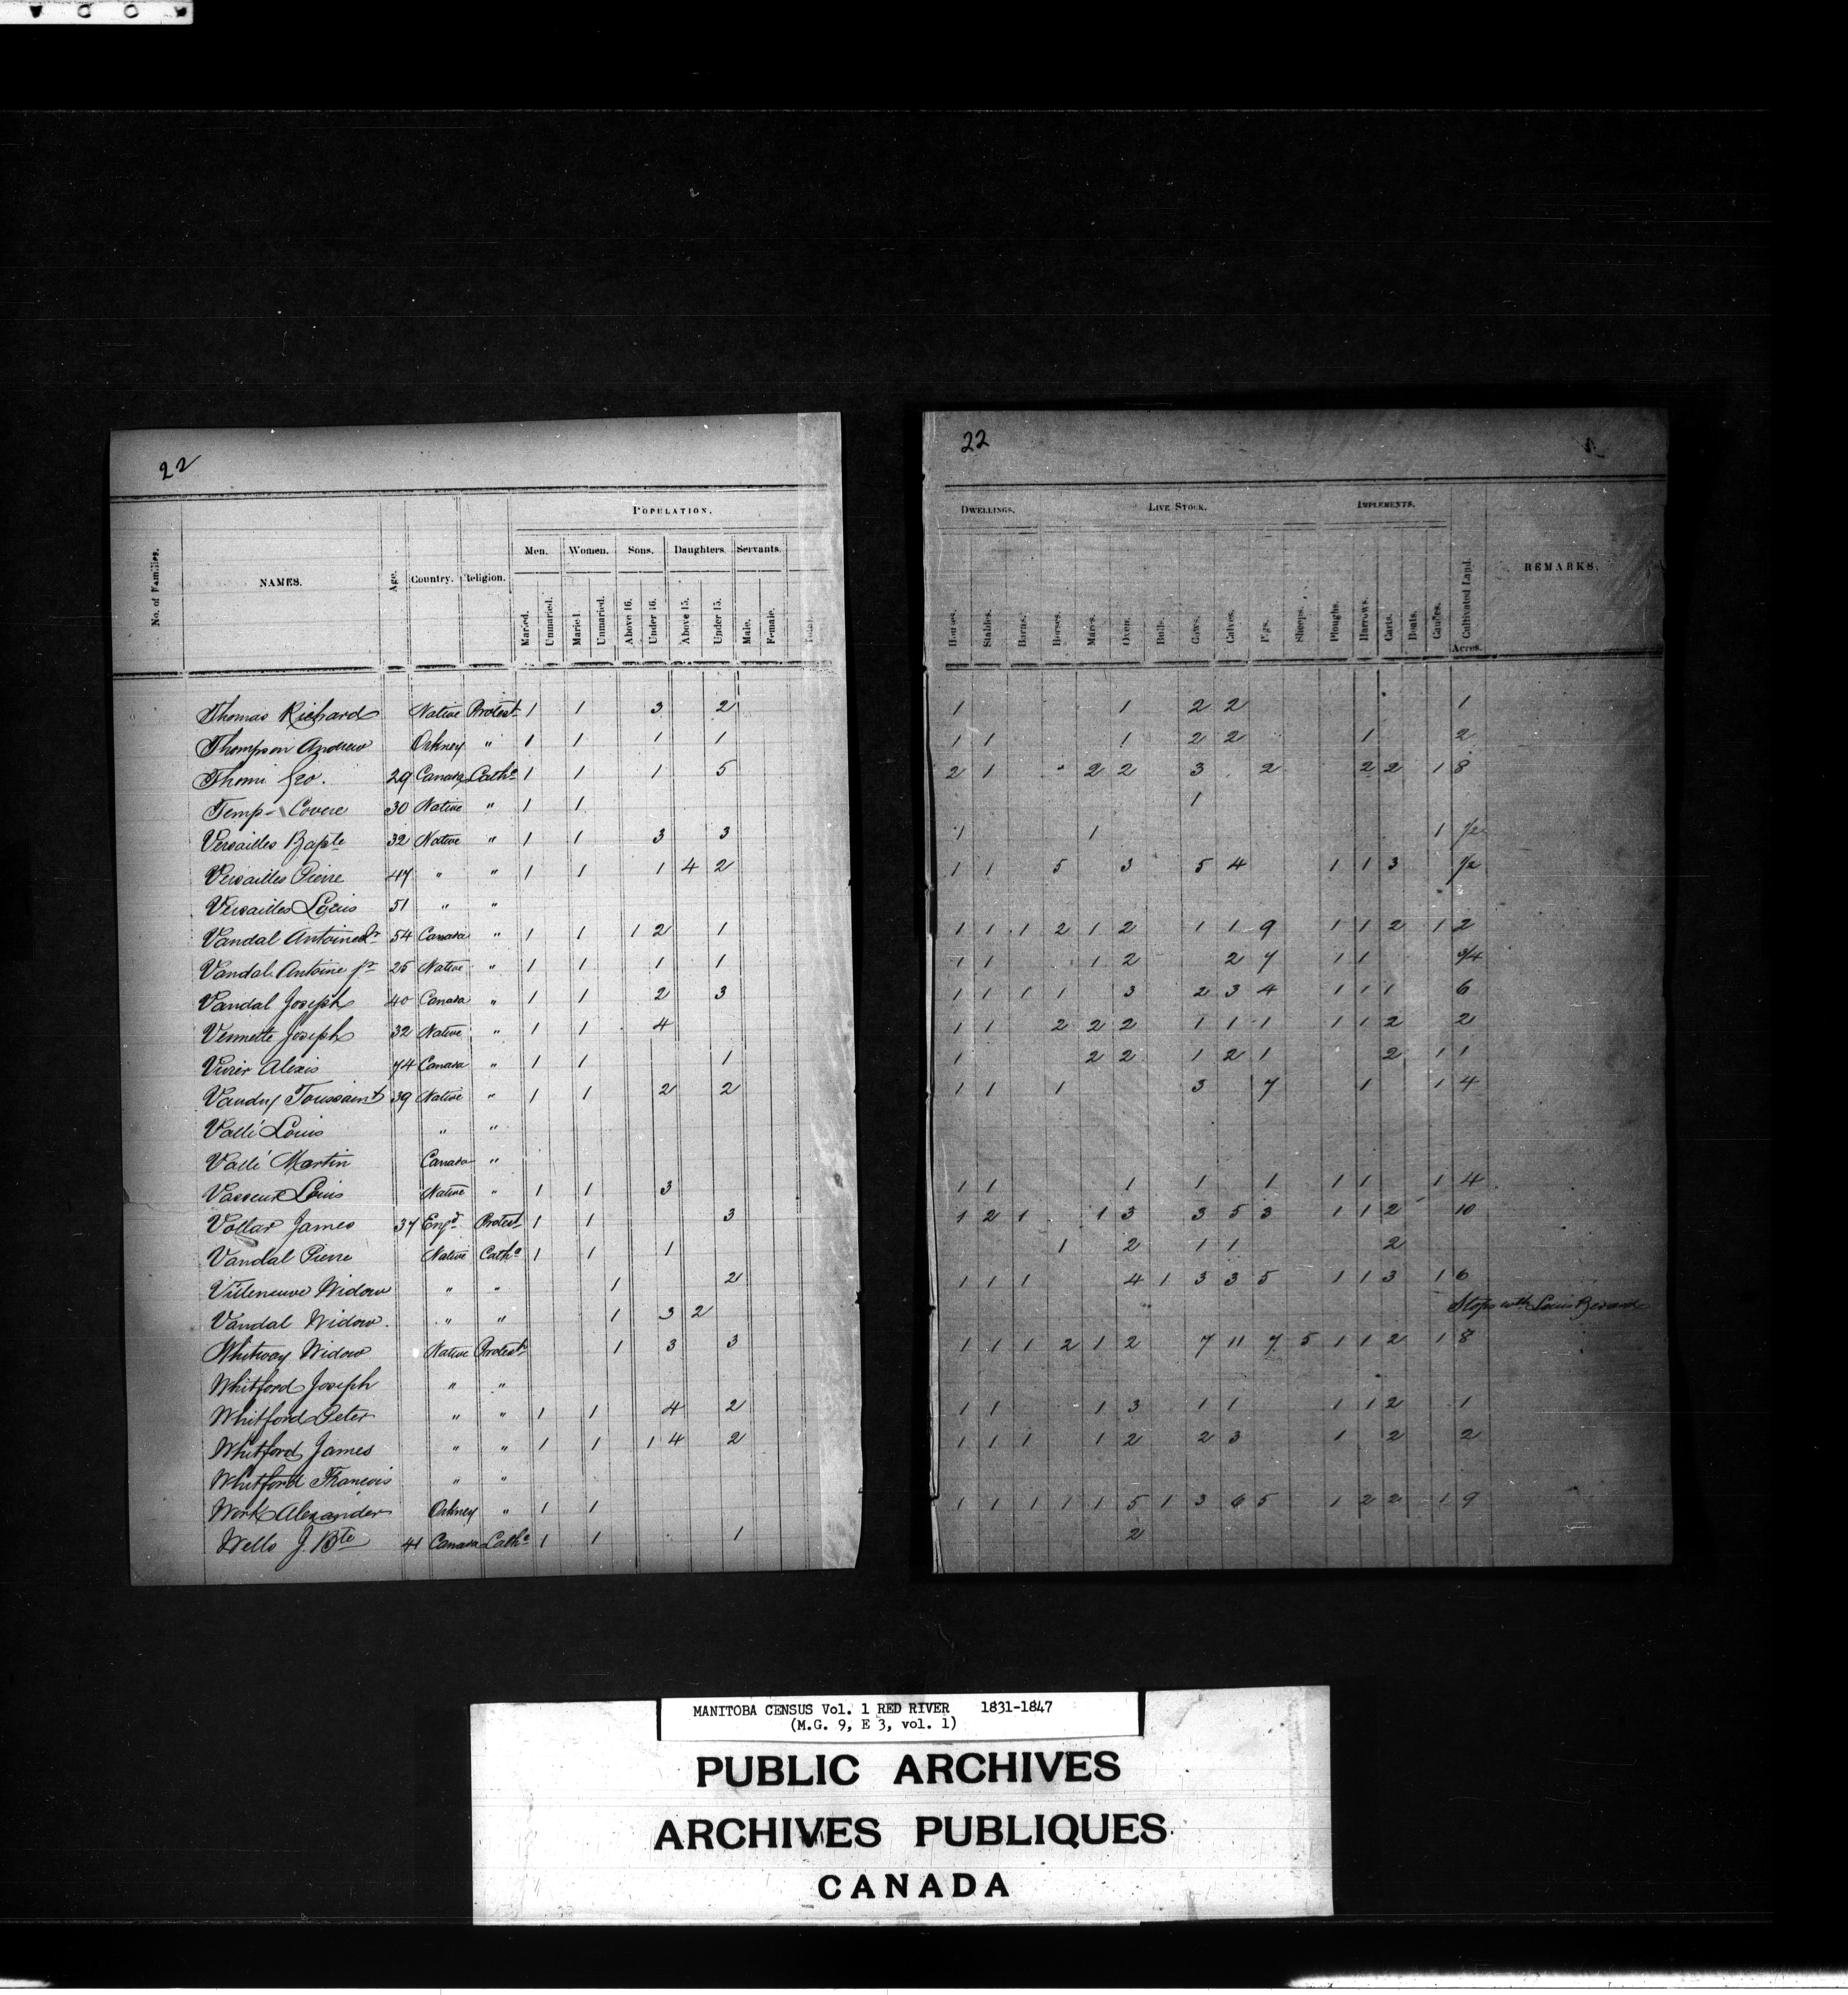 22
POPULATION.
No. of Families. NAMES. Age. Country. Religion. Men. Women. Sons. Daughters. Servants.
Maried. Unmaried. Maried. Unmaried. Above 16. Under 16. Above 15. Under 15. Male. Female. Total.
Thomas Richard Native Protest 1 1 3 2
Thompson Andrew Orkney " 1 1 1 1
Thomi Geo. 29 Canada Cathc 1 1 1 5
Temp Covere 30 Native " 1 1
Versailles Bapte 32 Native " 1 1 3 3
Versailles Pierre 47 " " 1 1 1 4 2
Versailles Louis 51 " "
Vandal Antoine Sr 54 Canada " 1 1 1 2 1
Vandal Antoine jr 25 Native " 1 1 1 1
Vandal Joseph 40 Canada " 1 1 2 3
Vennette Joseph 32 Native " 1 1 4
Vivier Alexis 74 Canada " 1 1 1
Vaudry Toussaint 39 Native " 1 1 2 2
Vallé Louis " "
Vallé Martin Canada "
Vasseur Louis Native " 1 1 3
Vollar James 37 Engd Protest 1 1 3
Vandal Pierre Native Cathc 1 1 1
Villeneuve Widow " " 1 2
Vandal Widow. " " 1 3 2
Whitway Widow Native Protest 1 3 3
Whitford Joseph " "
Whitford Peter " " 1 1 4 2
Whitford James " " 1 1 1 4 2
Whitford Francois " "
Work Alexander Orkney " 1 1
Wells J. Bte 41 Canada Cathc 1 1 1
22
DWELLINGS. LIVE STOCK. IMPLEMENTS.
Houses. Stables. Barns. Horses. Mares. Oxen. Bulls. Cows. Calves. Pigs. Sheeps. Ploughs. Harrows. Carts. Boats. Canoes. Cultivated Land. REMARKS.
Acres.
1 1 2 2 1
1 1 1 2 2 1 2
2 1 2 2 3 2 2 2 1 8
1
1 1 1 1/2
1 1 5 3 5 4 1 1 3 1/2
1 1 1 2 1 2 1 1 9 1 1 2 1 2
1 1 1 2 2 7 1 1 3/4
1 1 1 1 3 2 3 4 1 1 1 6
1 1 2 2 2 1 1 1 1 1 2 2
1 2 2 1 2 1 2 1 1
1 1 1 3 7 1 1 4
1 1 1 1 1 1 1 1 4
1 2 1 1 3 3 5 3 1 1 2 10
1 2 1 1 2
1 1 1 4 1 3 3 5 1 1 3 1 6
Stops with Louis
1 1 1 2 1 2 7 11 7 5 1 1 2 1 8
1 1 1 3 1 1 1 1 2 1
1 1 1 1 2 2 3 1 2 2
1 1 1 1 1 5 1 3 6 5 1 2 2 1 9
2
MANITOBA CENSUS Vol. 1 RED RIVER 1831-1847
(M.G. 9, E 3, vol. 1)
PUBLIC ARCHIVES
ARCHIVES PUBLIQUES
CANADA